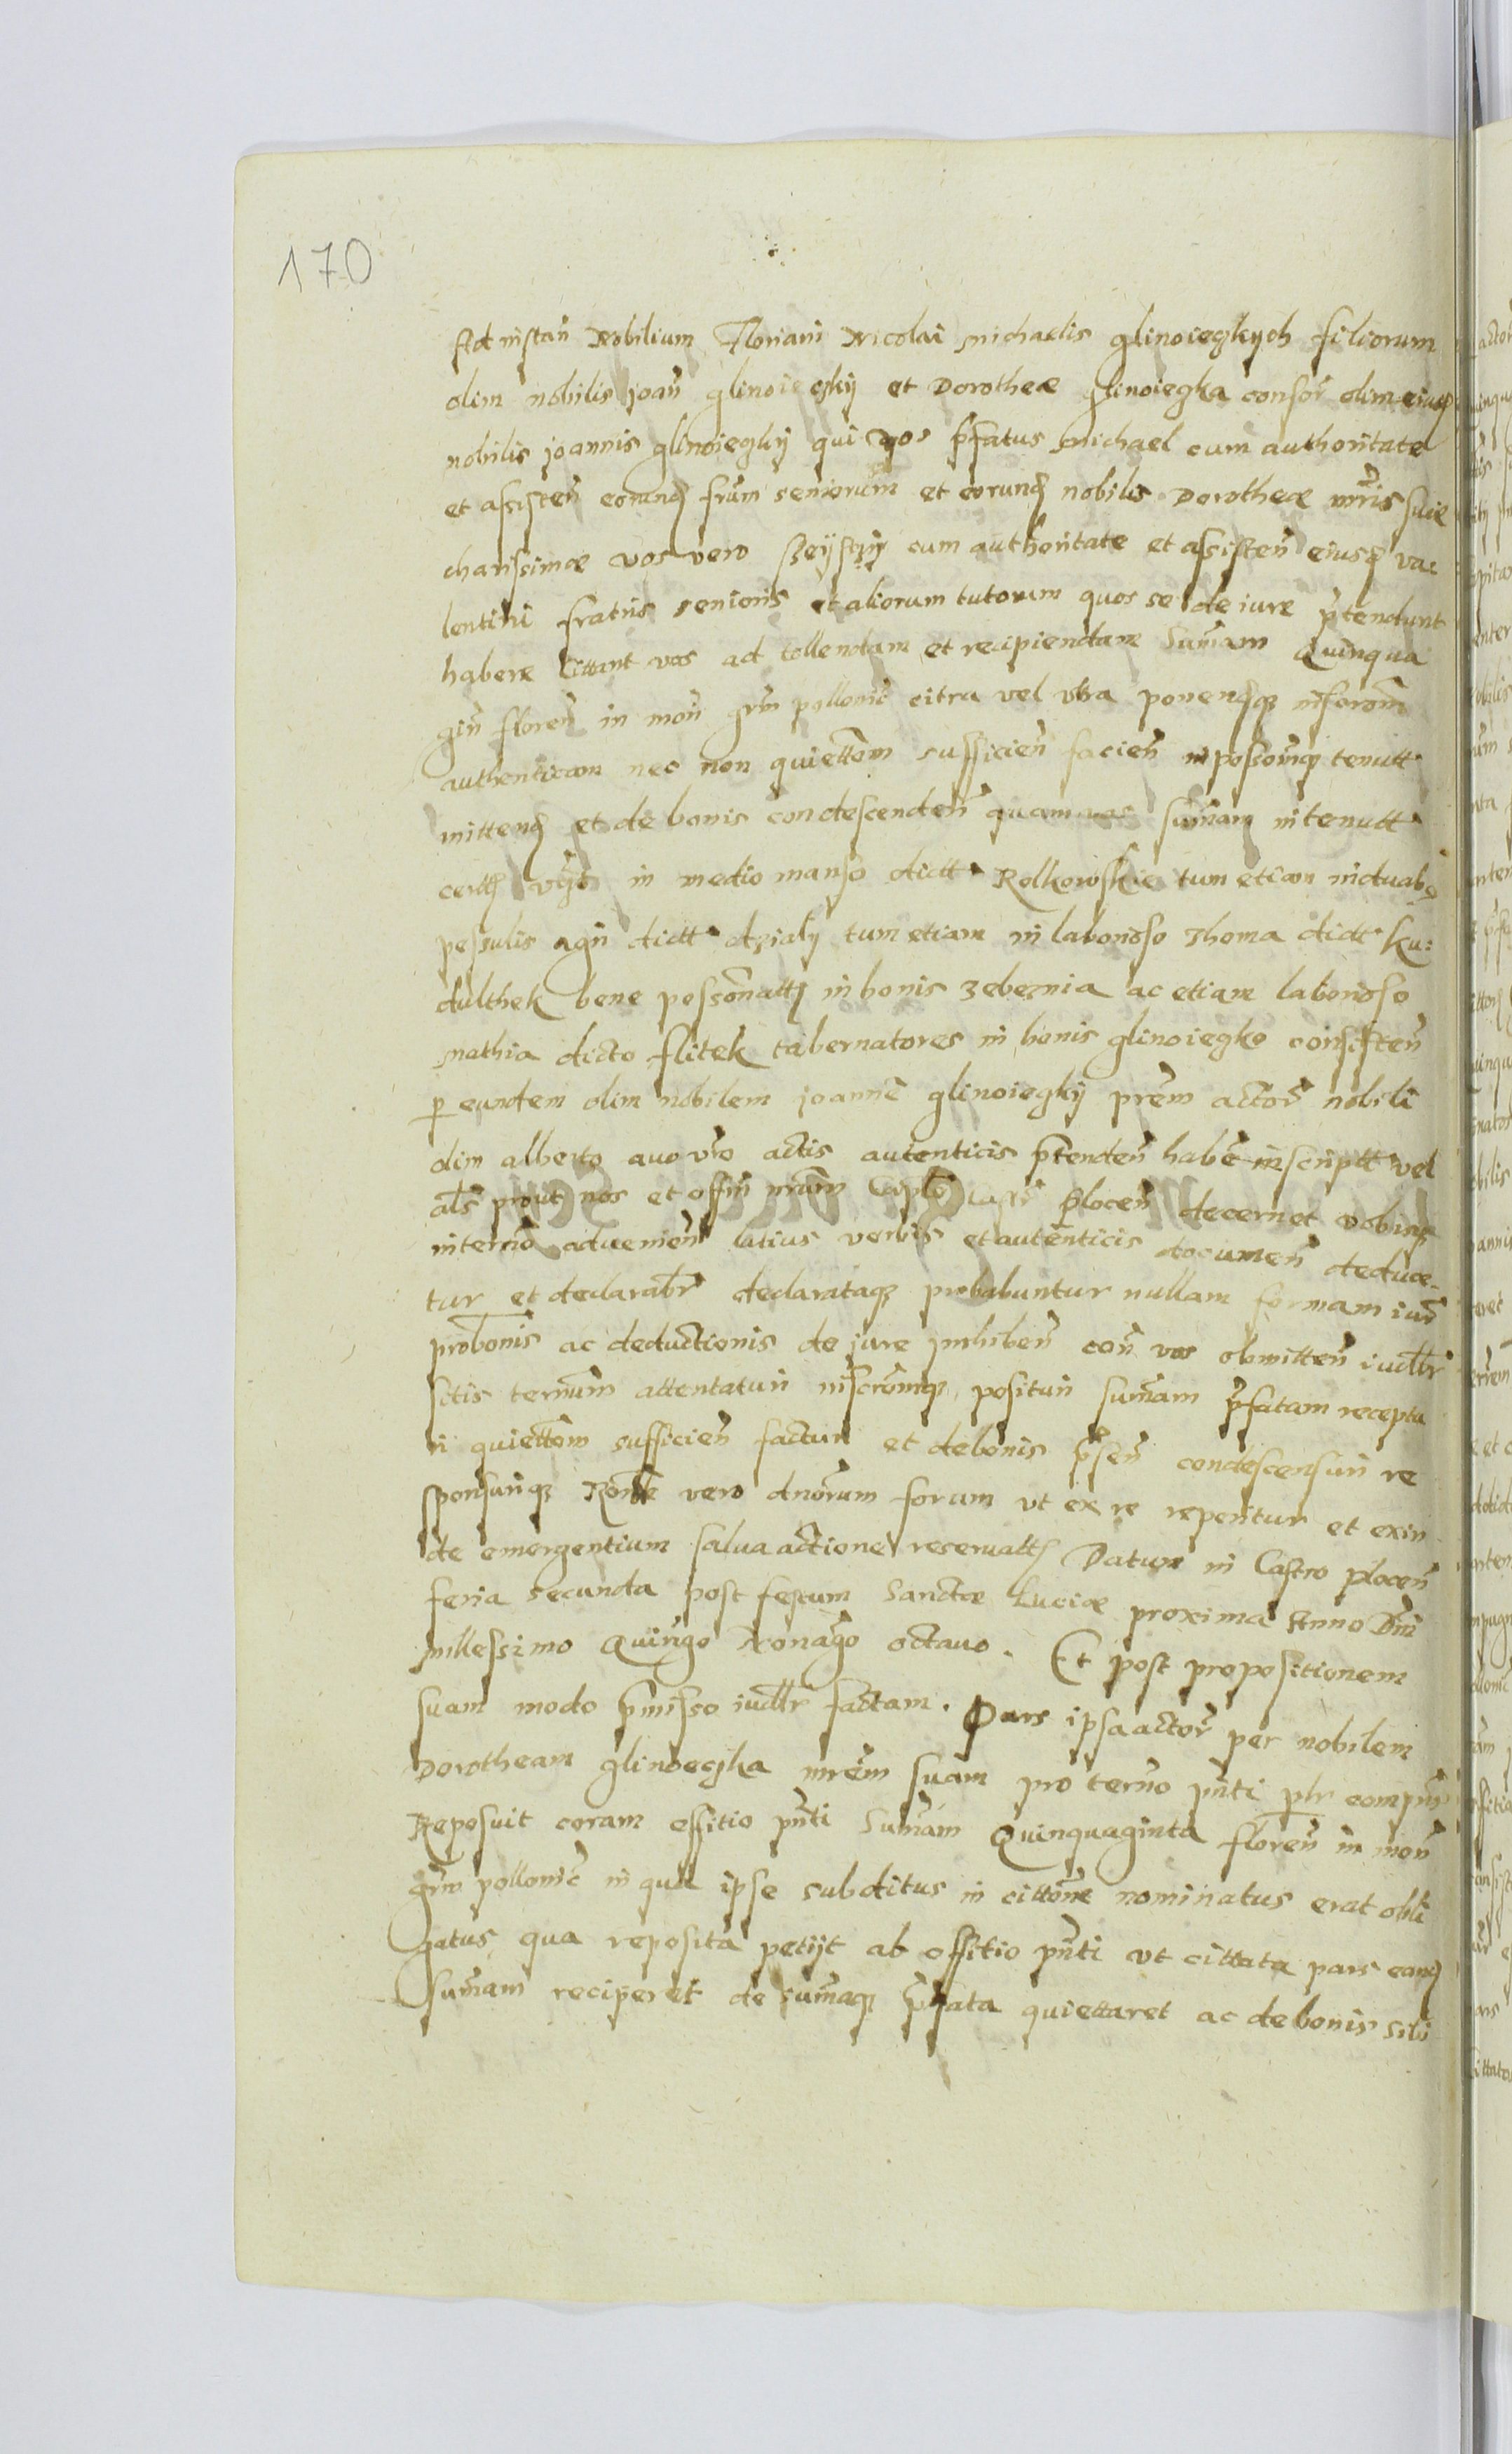 170
Ad instan̄ Nobilium Floriani Nicolai Michaelis glinoiegkych filiorum
olim nobilis joan̄ glinoiegkÿ et Dorotheæ glinoiegka consor̄ olim eiusd
nobilis joannis glinoiegkÿ qui vos p̄fatus Michael cum authoritate
et assisten̄ eorund frūm seniorum et eorund nobilis Dorotheæ mr̄is suæ
charissimæ vos vero cum authoritate et assisten̄ eiusd va
lentini fratris senioris et aliorum tutorum quos se de iure p̄tendunt
habere Cittant vos ad tollendam et recipiendam Sum̄am Quinqua
gin̄ floren̄ in mon̄ grm̄ pollonic̄ citra vel vltra ponendque inscrom̄
authenticam nec non quiettōm sufficien̄ facien̄ in possom̄q tenutt
mittend et de bonis condescenden̄ quam vos sum̄am in tenutt
certt in medio manso dictt Rolkowskie tum etiam in duab
pessulis agri dictt dzialy tum etiam in laborioso Thoma dictt ku:
dulthek bene possonatt in bonis zebeznia ac etiam laborioso
Mathia dicto flitek tabernatores in bonis glinoiegko consisten̄
p eundem olim nobilem joannē glinoiegkÿ prēm actor̄ nobili
olim alberto auo vr̄o actis autenticis p̄tenden̄ habē inscriptt vel
als̄ prout nos et offm̄ nr̄um Capl̄e plocen̄ decernet vobisq
in ter̄no aduenien̄ latius verbis et autenticis documen̄ deduce-
tur et declarabr̄ declarataque probabuntur nullam formam iur̄
probonis ac deductionis de jure prohiben̄ con̄ vos obmitten̄ iudlr̄
sitis term̄um attentaturi inscrom̄que posituri sum̄am p̄fatam receptu
ri quiettōm sufficien̄ facturi et de bonis p̄sen̄ condescensuri re
sponsurique vero dnōrum forum vt ex re reperitur et exin
de emergentium salua actione reseruatt Datum in Castro plocen̄
feria secunda post festum Sanctæ Luciæ proxima Anno Dni
Millessimo Quingo Nonag̃o octauo. Et post propositionem
suam modo p̄misso iudlr̄ factam. Pars ipsa actor̄ per nobilem
Dorotheam glinoegka mrēm suam pro termo pn̄ti plr̄ compn̄
Reposuit coram offitio pn̄ti Sum̄am Quinquaginta floren̄ in mon̄
grm̄ pollonic̄ in qua ipse subditus in cittōne nominatus erat obli
gatus qua reposita petijt ab offitio pn̄ti vt cittata pars eand
sum̄am reciperet de sum̄aque p̄fata quiettaret ac de bonis sibi